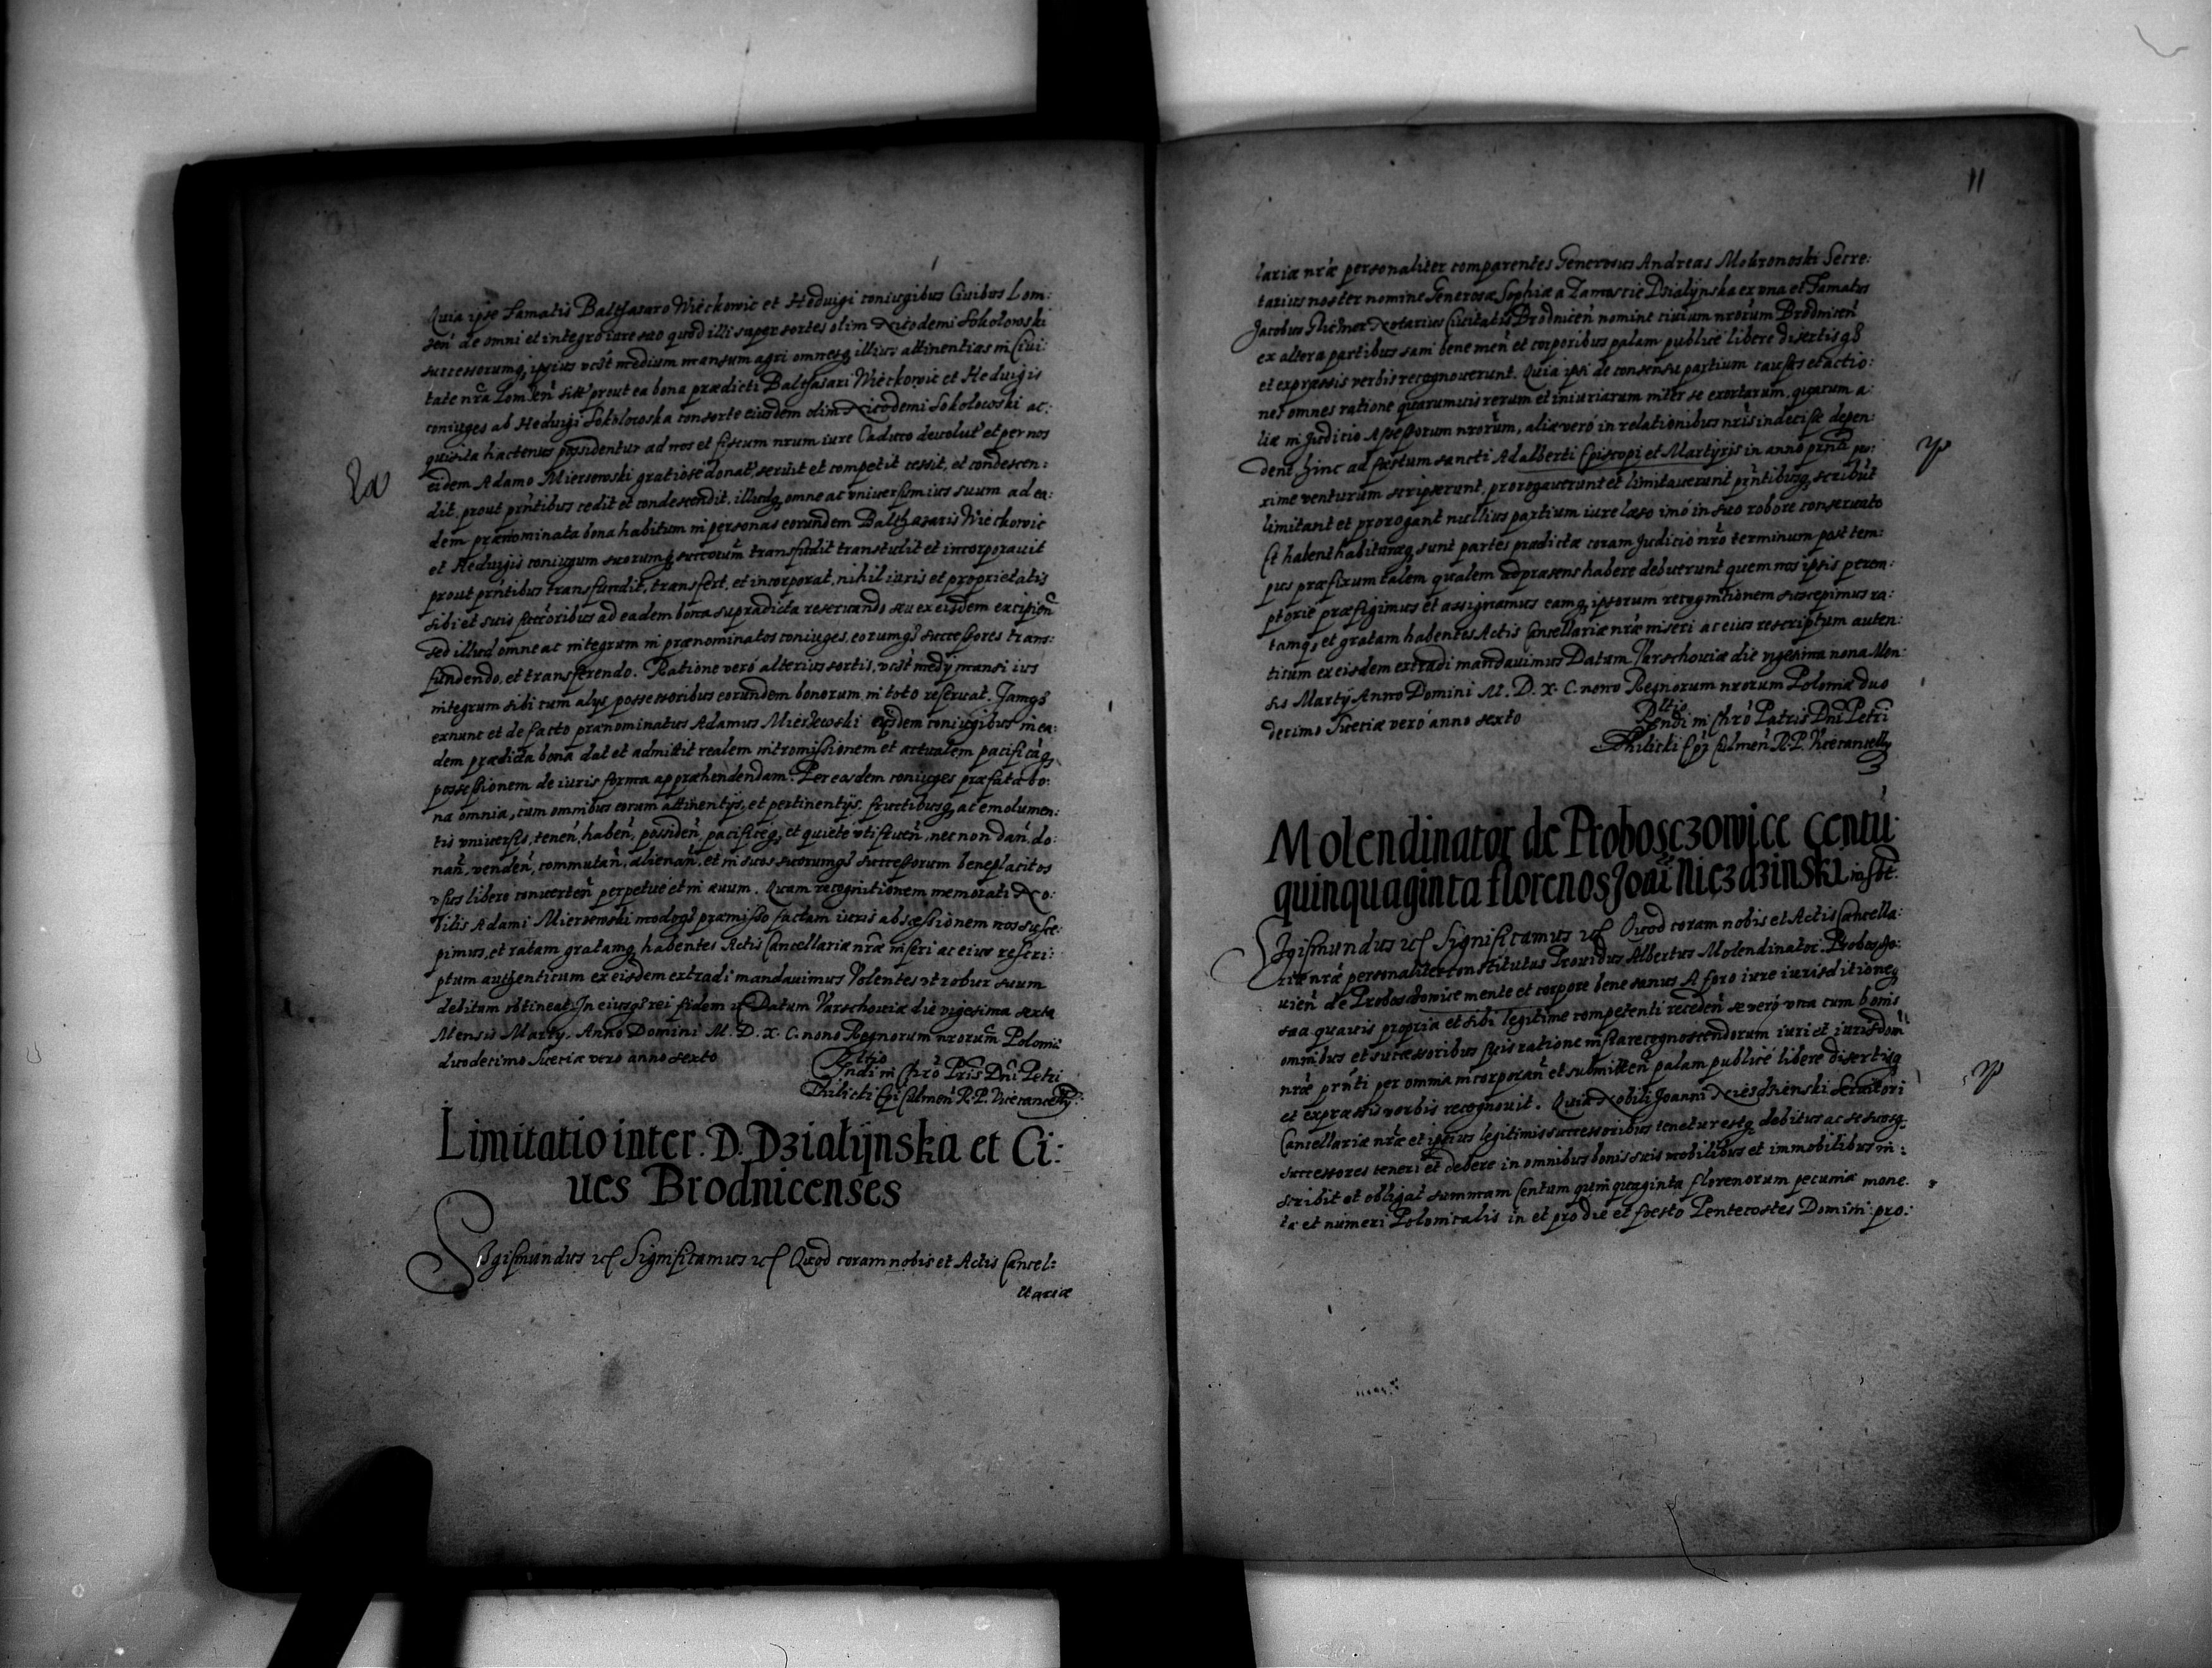 Quia ipse Famatis Balthasaro Więckowic et Heduigi coniugibus Ciuibus Lom:
zen̄ de omni et integro iure suo quod illi super sortes olim Nicodemi Sokolowski
successorumq, ipsius vczt medium mansum agri omnesq, illius attinentias in Ciui:
tate nr̄a Lomzen̄ prout ea bona prædicti Balthasari Więckowic et Heduigis
coniuges ab Heduigi Sokolowska consorte eiusdem olim Nicodemi Sokolowski ac:
quisita hactenus possidentur ad nos et fiscum nrum iure Caduco deuolut et per nos
eidem Adamo Mierzewski gratiose donat, seruit et competit cessit, et condescen:
dit, prout pr̄ntibus cedit et condescendit, illudq, omne ac vniuersum ius suum ad ea:
dem prænominata bona habitum in personas eorundem Balthasaris Więckowic
et Heduigis coniugum suorumq, succorum̄ transfudit transtulit et incorporauit
prout pr̄ntibus transfundit, transfert, et incorporat, nihil iuris et proprietatis
sibi et suis succoribus ad eadem bona supradicta reseruando seu ex eisdem excipien̄
sed illud omne ac integrum in prænominatos coniuges, eorumq, successores trans:
fundendo, et transferendo. Ratione verò alterius sortis, vczt medÿ mansi ius
integrum sibi cum alÿs possessoribus eorundem bonorum, in toto reseruat. Jamq,
exnunc et de facto prænominatus Adamus Mierzewski eisdem coniugibus in ea:
dem prædicta bona dat et admittit realem intromissionem et actualem pacificaq,
possessionem de iuris forma apprehendendam. Per eosdem coniuges præfata bo:
na omnia, cum omnibus eorum attinentÿs, et pertinentÿs, fructibusq, ac emolumen:
tis vniuersis, tenen̄, haben̄, possiden̄, pacificeq, et quiete vtifruen̄, nec non dan̄, do:
nan̄, venden̄, commutan̄, alienan̄, et in suos suorumq, successorum beneplacitos
vsus libero conuerten̄ perpetuè et in æuum. Quam recognitionem memorati No:
bilis Adami Mierzewski modoq, præmisso factam iuris abscessionem nos susce:
pimus, et ratam gratamq, habentes Actis Cancellariæ nræ inseri ac eius rescri:
ptum authenticum ex eisdem extradi mandauimus Volentes vt robur suum
debitum obtineat. In cuius rei fidem etc. Datum Varschouiæ die vigesima sexta
Mensis Martÿ. Anno Domini M. D. X. C. nono Regnorum nrorum Poloniæ
duodecimo Sueciæ vero anno sexto
Rltio
Rndi in Chro Pris Dni Petri
Thilicki Epi Culmen̄ R. P. Vicecancellÿ
Limitatio inter. D. Dzialÿnska et Ci:
ues Brodnicenses
Sigismundus etc. Significamus etc. Quod coram nobis et Actis Cancel:
lariæ
11
lariæ nræ personaliter comparentes Generosus Andreas Mokronoski Secre:
tarius noster nomine Generosæ Sophiæ a Zamoscie Dzialÿnska ex vna et Famatus
Jacobus Notarius Ciuitatis Brodnicen̄ nomine ciuium nrorum Brodnicen̄
ex altera partibus sani bene men̄ et corporibus palam publice libere disertisq,
et expressis verbis recognouerunt. Quia ipsi de consensu partium causas et actio:
nes omnes ratione quarumuis rerum et iniuriarum inter se exortarum, quarum a:
liæ in Judicio Assessorum nrorum, aliæ verò in relationibus nris indecisæ depen:
dent hinc ad festum sancti Adalberti Episcopi et Martÿris in anno prn̄ti pro:
xime venturum scripserunt, prorogauerunt et limitauerunt prn̄tibusq, scribūt
limitant et prorogant nullius partium iure læso imò in suo robore conseruato
Et habent habituræq, sunt partes prædictæ coram Judicio nro terminum post tem:
pus præfixum talem qualem ad præsens habere debuerunt quem nos ipsis perem:
ptorie præfigimus et assignamus eamq, ipsorum recognitionem suscepimus ra:
tamq, et gratam habentes Actis Cancellariæ nræ inseri ac eius rescriptum auten:
ticum ex eisdem extradi mandauimus Datum Varschouiæ die vigesima nona Men:
sis Martÿ Anno Domini M. D. X. C. nono Regnorum nrorum Poloniæ duo
decimo Sueciæ verò anno sexto
Rltio
Rndi in Chro Patris Dni Petri
Thilicki Epi Culmen̄ R. P. Vicecancellÿ
Molendinator de Probosczowice centū
quinquaginta florenos Joañi Niezdzinski inscbt.
Sigismundus etc. Significamus etc. Quod coram nobis et Actis Cancella:
riæ nræ personaliter constitutus Prouidus Albertus Molendinator Probosczo:
uien̄ de Probosczowice mente et corpore bene sanus A foro iure iurisditioneq,
sua quauis propria et sibi legitime competenti receden̄ se verò vna cum bonis
omnibus et successoribus suis ratione infra recognoscendorum iuri et iurisdoni
nræ prn̄ti per omnia incorporan̄ et submitten̄ palam publicè libere disertisq
et expressis verbis recognouit. Quia Nobili Joanni Niezdzienski Seruitori
Cancellariæ nræ et ipsius legitimis successoribus tenetur estq, debitus ac se suosq,
successores teneri et debere in omnibus bonis suis mobilibus et immobilibus in:
scribit et obligat summam Centum quinquaginta florenorum pecuniæ mone:
tæ et numeri Polonicalis in et pro die et festo Pentecostes Domini pro: